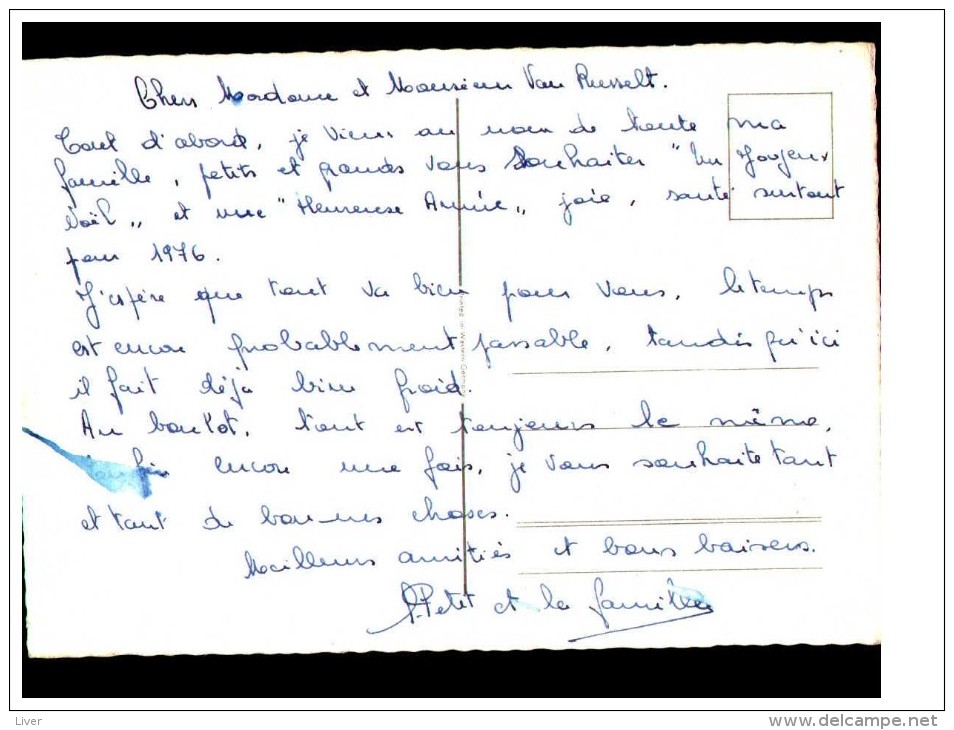 Chers Madame et Monsieur Van Russelt.
Tout d'abord, je viens au nom de toute ma
famille, petits et grands vous souhaiter "Un Joyeux
Noël„ et une "Heureuse Année„ joie, santé surtout
pour 1976.
J'espère que tout va bien pour vous, le temps
est encore probablement passable, tandis qu'ici
il fait déjà bien froid.
Au boulot, tout est toujours le même,
Enfin encore une fois, je vous souhaite tant
et tant de bonnes choses.
Meilleurs amitiés et bons baisers.
Petit et la famille
Printed in Western Germany
Liver
www.delcampe.net